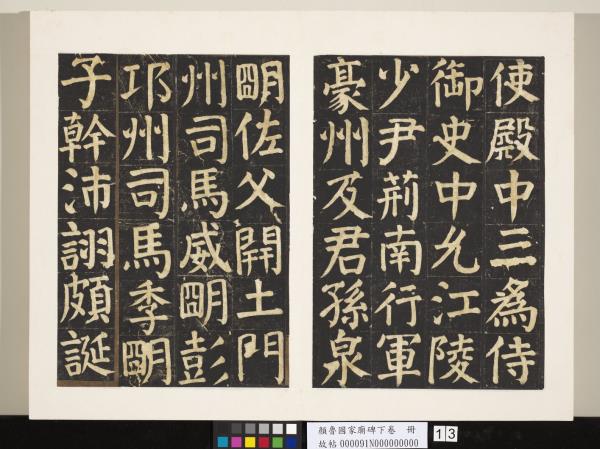 使殿中三為侍
御史中允江陵
少尹荊南行軍
豪州及君孫泉
明佐父開土門
州司馬威明彭
邛州司馬季明
子幹沛詡頗誕
顏魯國家廟碑下卷 冊
故帖 000091N000000000
13